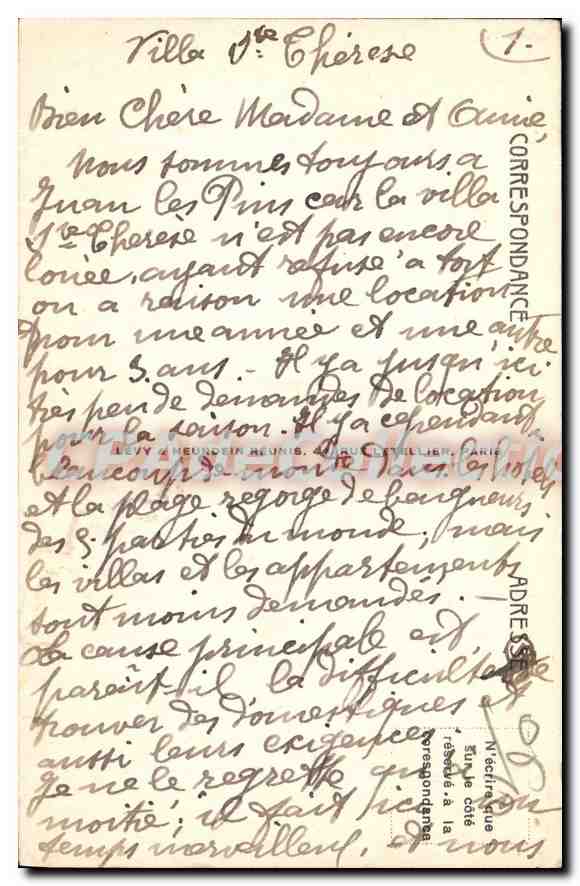 1.
Villa Ste Thérèse
Bien Chère Madame et Amie,
Nous sommes toujours a
Juan les Pins car la villa
Ste Therèse n'est pas encore
louée, ayant refusé a tort
ou a raison une location
pour une année et une autre
pour 3 ans. - Il y a jusqu'ici
très peu de demandes de location
pour la saison. Il y a cependant
LÉVY & NEURDEIN RÉUNIS, 44, RUE LETELLIER, PARIS
beaucoup de monde dans les hotels
et la plage regorge de baigneurs
des 5 parties du monde; mais
les villas et les appartements
sont moins demandés.
La cause principale est,
paraît-il la difficulté de
trouver des domestiques et
aussi leurs exigences.
Je ne le regrette qu'
moitié; il fait ici un
temps merveilleux, et nous
CORRESPONDANCE
ADRESSE
N'écrire que
sur le côté
réservé à la
correspondance